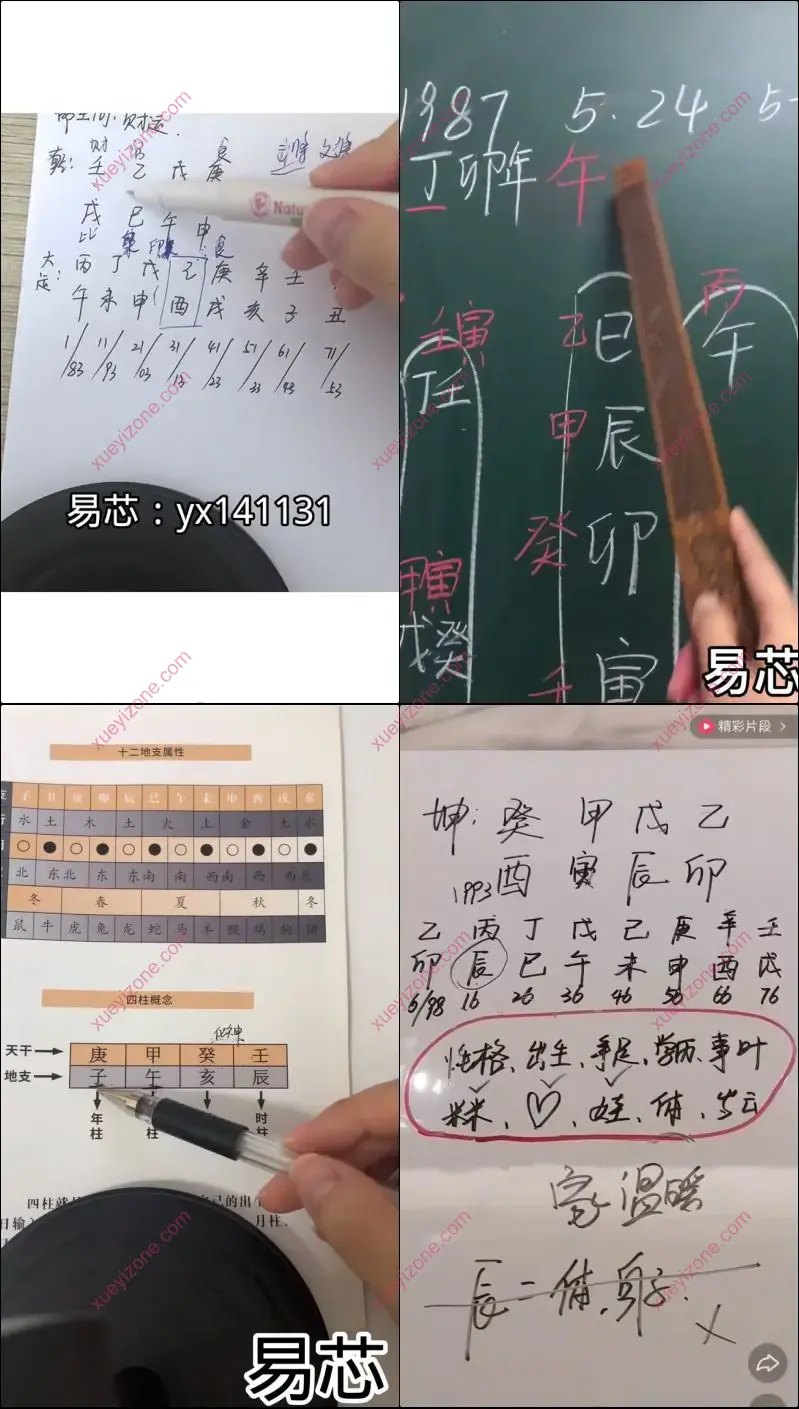 财运
乾: 壬 乙 戊 庚
戌 巳 午 申
大运: 丙 丁 戊 己 庚 辛 壬
午 未 申 酉 戌 亥 子 丑
1/83 11/93 21/03 31/13 41/23 51/33 61/43 71/53
易芯：yx141131
1987 5.24
丁卯年 午
壬寅
丁壬
甲寅
戊癸
乙巳
甲辰
癸卯
壬寅
丙午
易芯
十二地支属性
子 丑 寅 卯 辰 巳 午 未 申 酉 戌 亥
水 土 木 土 火 土 金 土 水
北 东北 东 东南 南 西南 西 西北
冬 春 夏 秋 冬
鼠 牛 虎 兔 龙 蛇 马 羊 猴 鸡 狗 猪
四柱概念
天干 庚 甲 癸 壬
地支 子 午 亥 辰
年柱 柱 时柱
四柱就
己的出
日输入
月柱、
易芯
精彩片段
坤: 癸 甲 戊 乙
1993 酉 寅 辰 卯
乙 丙 丁 戊 己 庚 辛 壬
卯 辰 巳 午 未 申 酉 戌
6/98 16 26 36 46 56 66 76
性格、出生、手足、学历、事叶
米米、♡、娃、体、岁云
家温暖
xueyizone.com
xueyizone.com
xueyizone.com
xueyizone.com
xueyizone.com
xueyizone.com
xueyizone.com
xueyizone.com
xueyizone.com
xueyizone.com
xueyizone.com
xueyizone.com